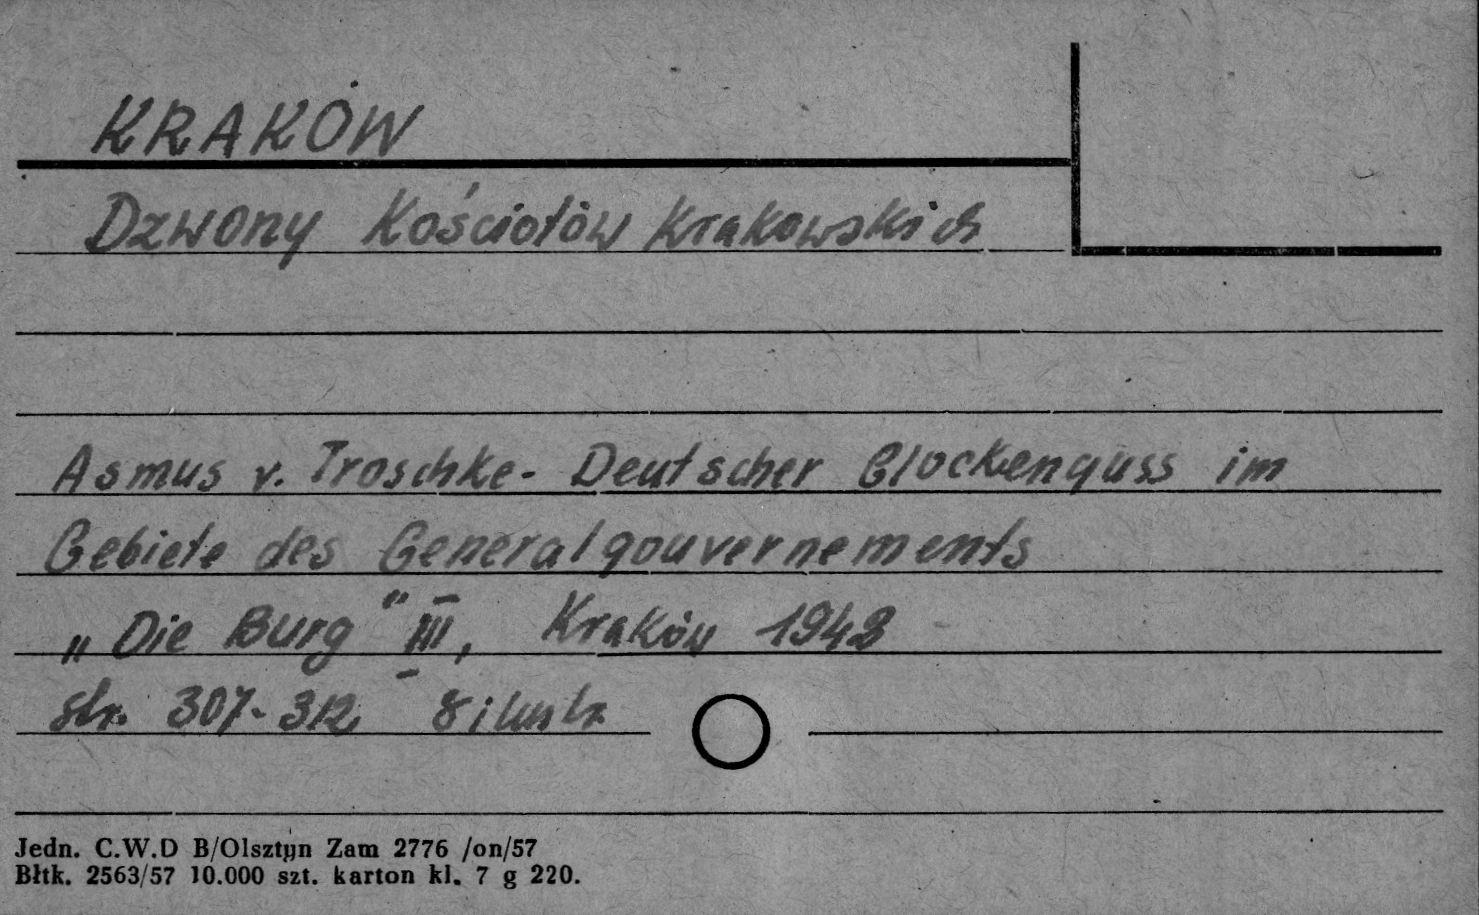 KRAKÓW
Dzwony Kościołów Krakowskich
Asmus v. Troschke - Deutscher Glockenguss im
Gebiete des Generalgouvernements
„Die Burg" III, Kraków 1942
str. 307-312 8 ilustr.
Jedn. C.W.D B/Olsztyn Zam 2776 /on/57
Błtk. 2563/57 10.000 szt. karton kl. 7 g 220.